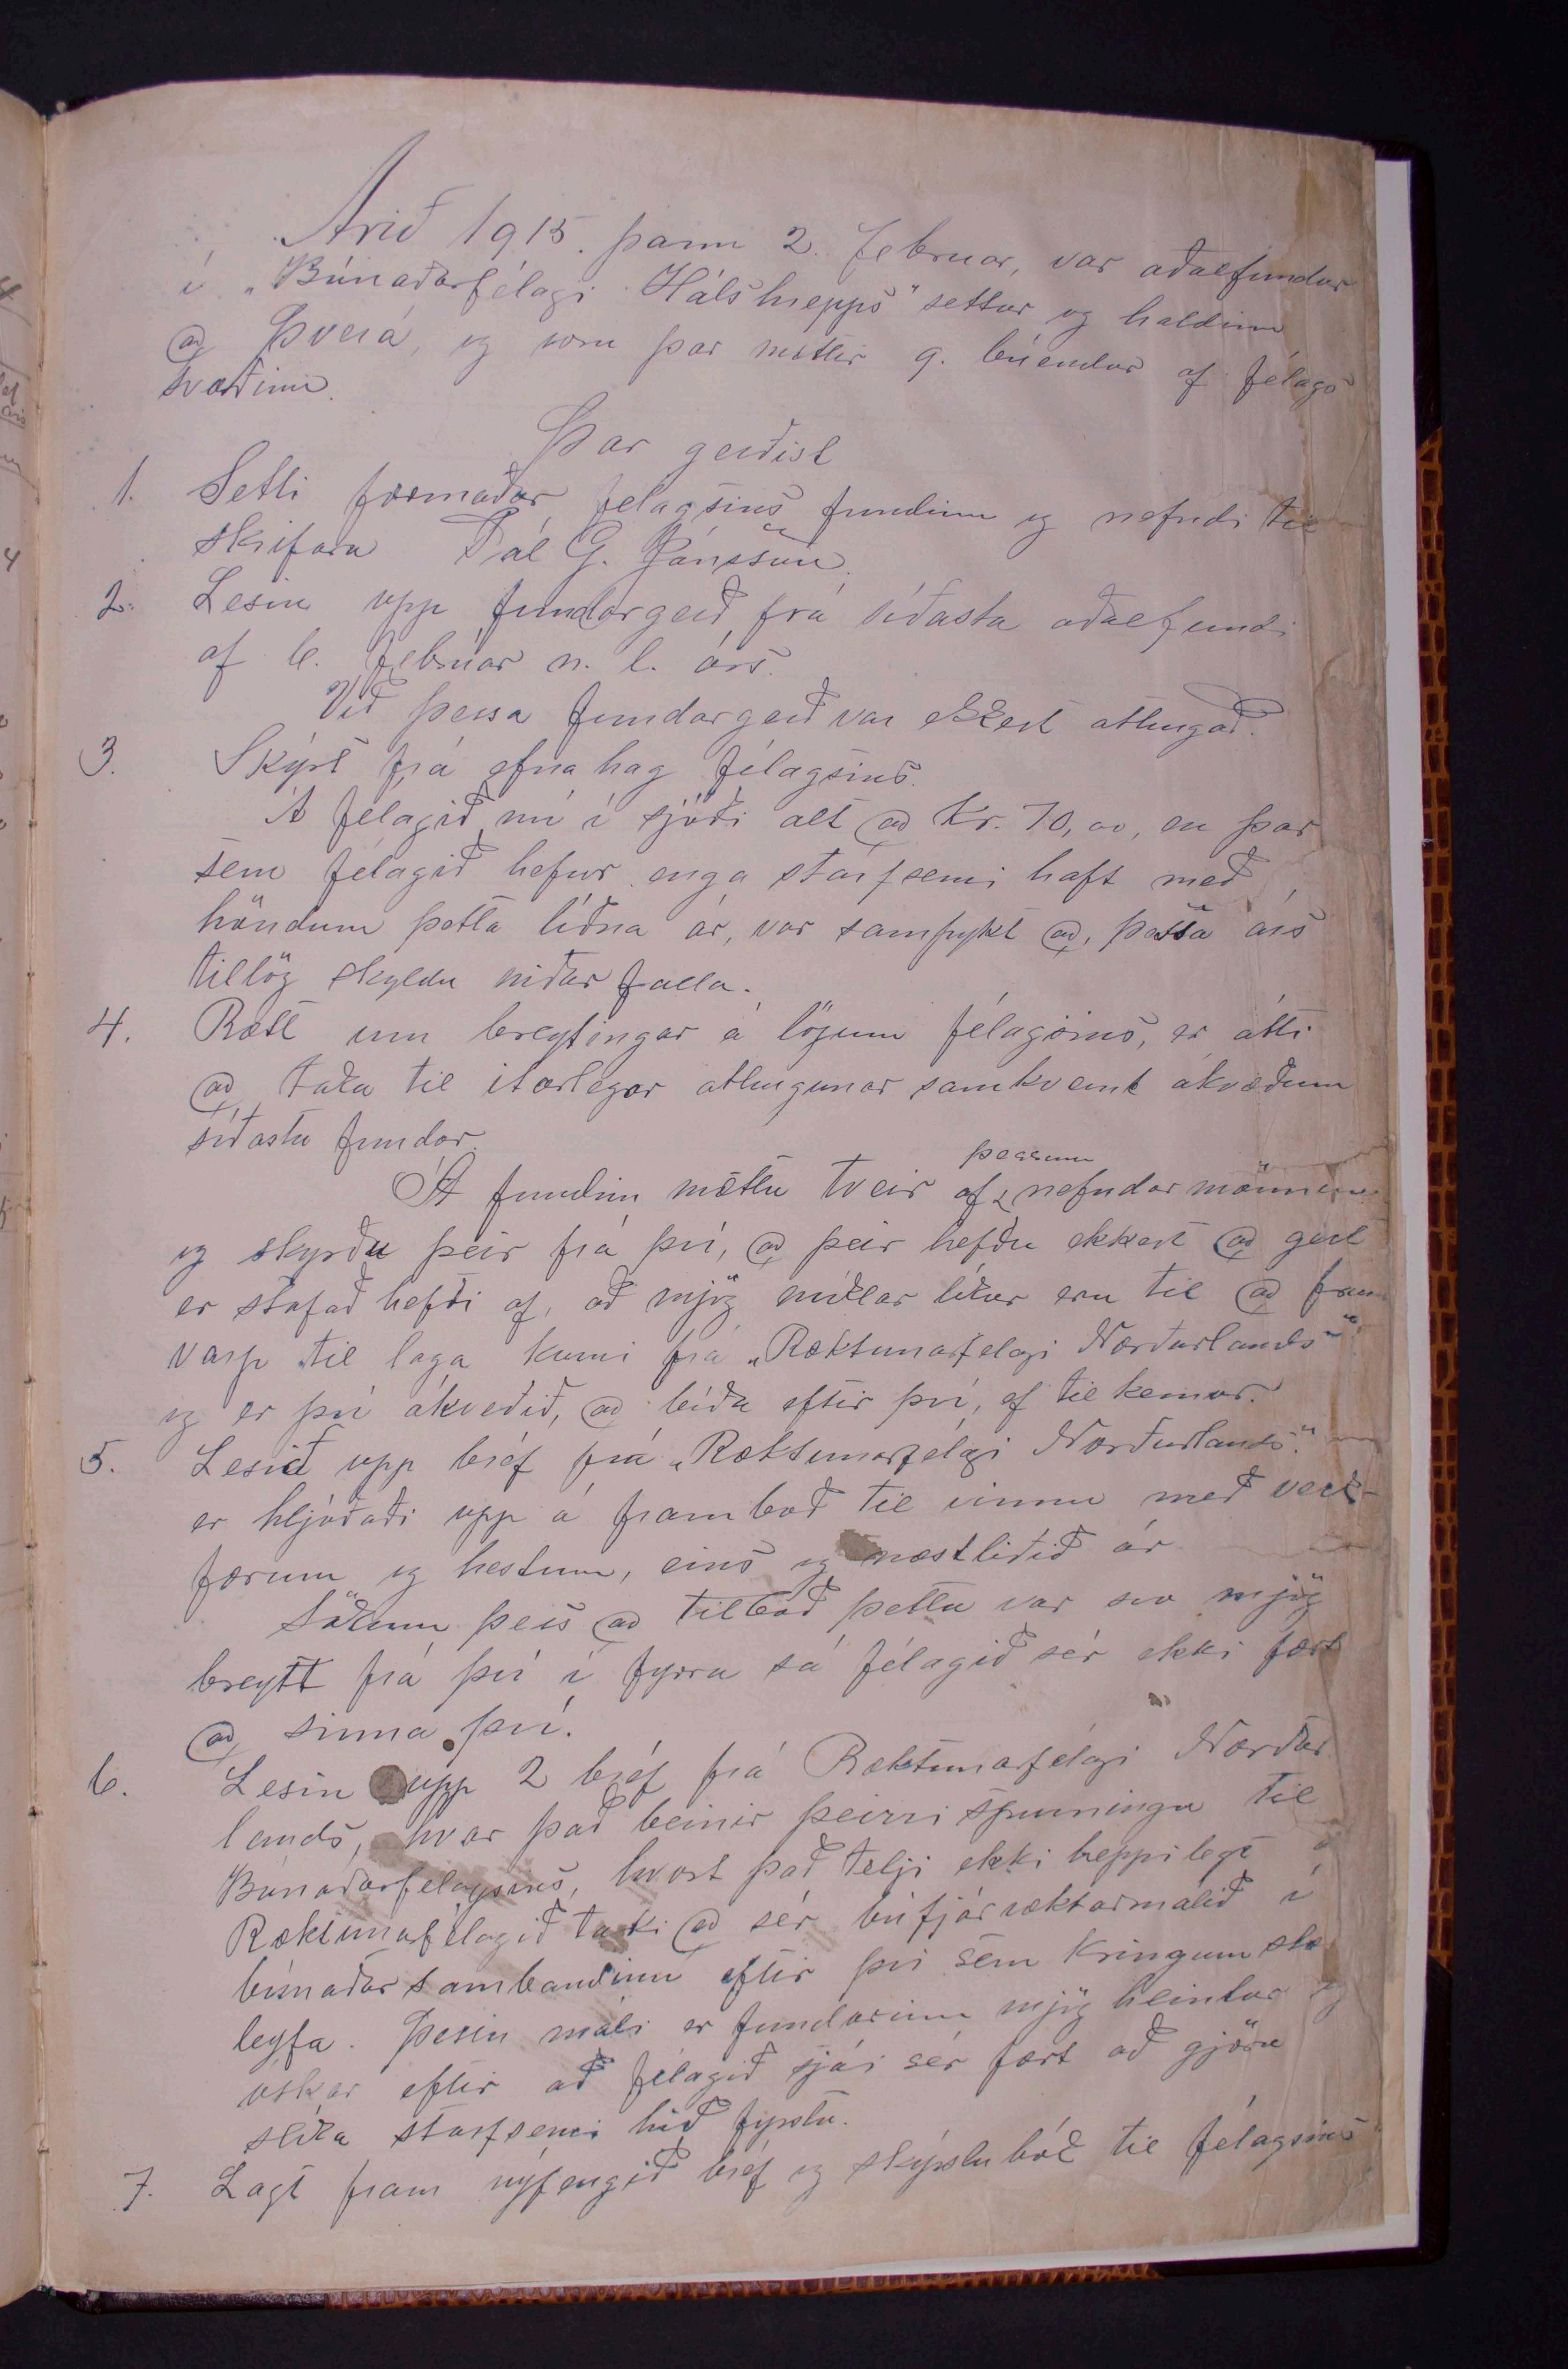 Árið 1915. þann 2. februar, var aðalfundur
í „Búnaðarfélagi Hálshrepps" settur og haldinn
að Þverá, og som þar mættir 9. búendur af félags
svæðinu.
Þar gerðist
1. Setti formaður félagsins fundinn og nefndi til
skrifara Pál G. Jónsson.
2. Lesin upp fundargerð frá síðasta aðalfundi
af 6. febrúar n. l. árs.
Við þessa fundargerð var ekkert athugað.
3. Skýrt frá efnahag félagsins.
Á félagið nú í sjóði alt að Kr. 70,00, en þar
sem félagið hefur enga starfsemi haft með
höndum þetta liðna ár, var samþykt að, þessa árs
tillög skyldu niður falla.
4. Rætt um breytingar á lögum félagsins, er átti
að taka til itarlegar athugunar samkvæmt ákvæðum
síðasta fundar.
Á fundinn mættu tveir af þessum nefndarmönnum
og skyrðu þeir frá því, að þeir hefðu ekkert að gert
er stafað hefði af, að mjög miklar líkur eru til að frum
varp til laga komi frá „Ræktunarfelagi Norðurlands"
og er því ákveðið, að bíða eftir því, ef til kemur.
5. Lesið upp bréf frá „Ræktunarfélagi Norðurlands."
er hljóðaði upp á framboð til vinnu með verk-
færum og hestum, eins og næstliðið ár.
Sökum þess að tilboð þetta var svo mjög
breytt frá því í fyrra sá félagið sér ekki fært
að sinna því.
6. Lesin upp 2 bréf frá Ræktunarfélagi Norður
lands, hvar það beinir þeirri spurningu til
Búnaðarfelagsins, hvort það telji ekki heppilegt að
Ræktunarfélagið taki að sér búfjárræktarmálið í
búnaðarsambandinu eftir því sem kringumstæ
leyfa. Þessu máli er fundurinn mjög hlintur og
óskar eftir að félagið sjái sér fært að gjöra
slíka starfsemi hið fyrsta.
7. Lagt fram nýfengið bréf og skýrslubók til félagsins